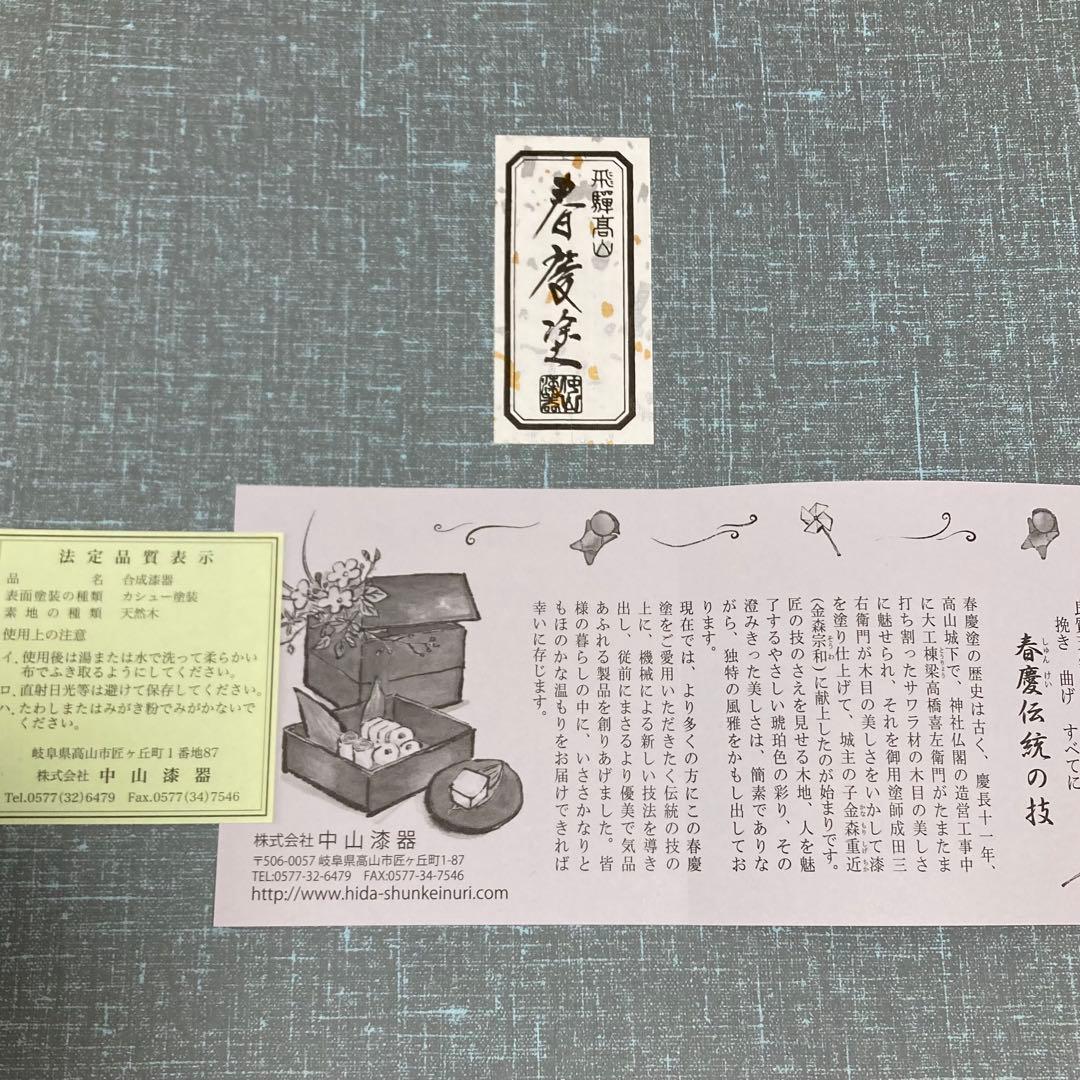 飛騨高山
春慶塗
中山漆器
法定品質表示
品名 合成漆器
表面塗装の種類 カシュー塗装
素地の種類 天然木
使用上の注意
イ、使用後は湯または水で洗って柔らかい
布でふき取るようにしてください。
ロ、直射日光等は避けて保存してください。
ハ、たわしまたはみがき粉でみがかないで
ください。
岐阜県高山市匠ヶ丘町1番地87
株式会社 中山漆器
Tel.0577(32)6479 Fax.0577(34)7546
挽き 曲げ すべてに
春慶伝統の技
しゅんけい
春慶塗の歴史は古く、慶長十一年、
高山城下で、神社仏閣の造営工事中
に大工棟梁高橋喜左衛門がたまたま
とうりょう
打ち割ったサワラ材の木目の美しさ
に魅せられ、それを御用塗師成田三
右衛門が木目の美しさをいかして漆
を塗り仕上げて、城主の子金森重近
かなもりしげちか
(金森宗和)に献上したのが始まりです。
そうわ
了するやさしい琥珀色の彩り、その
匠の技のさえを見せる木地、人を魅
澄みきった美しさは、簡素でありな
がら、独特の風雅をかもし出してお
ります。
現在では、より多くの方にこの春慶
塗をご愛用いただきたく伝統の技の
上に、機械による新しい技法を導き
出し、従前にまさるより優美で気品
あふれる製品を創りあげました。皆
様の暮らしの中に、いささかなりと
もほのかな温もりをお届けできれば
幸いに存じます。
株式会社 中山漆器
〒506-0057 岐阜県高山市匠ヶ丘町1-87
TEL:0577-32-6479 FAX:0577-34-7546
http://www.hida-shunkeinuri.com